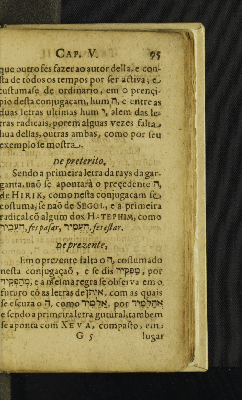 CAP. V. 95
que outro fes fazer ao autor della. e con-
sta de todos os tempos por ser activa; e
custumase de ordinario, em o prenci-
pio desta conjugaçam, hum ה, e entre as
duas letras ultimas hum י, alem das le-
tras radicais, porem algumas vezes falta
hũa dellas, outras ambas, como por seu
exemplo se mostra.
De preterito.
Sendo a primeira letra da rays da gar-
ganta, naõ se apontará o precedente ה,
de HIRIK, como nesta conjugaçam se
costuma, se naõ de SEGOL, e a primeira
radical cõ algum dos H-TEPHIM, como
הֶעֱבִיר, fes passar, הֶעֱמִיד, fes estar.
De prezente,
Em o prezente falta o ה, costumado
nesta conjugaçaõ, e se dis מַפְקִיד, por
מְהַפְקִיד, e a mesma regra se observa em o
futuro cõ as letras de איתן, com as quais
se escuza o ה, como אַלְמִיד, por אֲהַלְמִיד,
e sendo a primeira letra gutural, tambem
se aponta com XEVA, composto, em
G 5 lugar